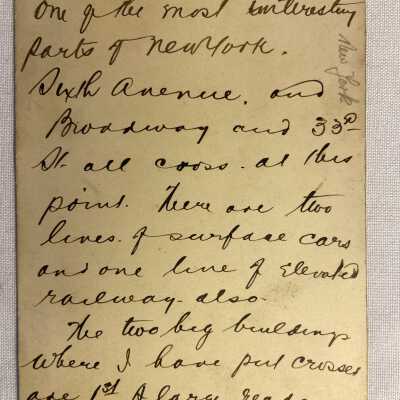 One of the most interesting
parts of New York.
New York
Sixth Avenue, and
Broadway and 33rd
St. all cross at this
point. There are two
lines of surface cars
and one line of Elevated
railway also.
The two big buildings
where I have put crosses
are 1st A large